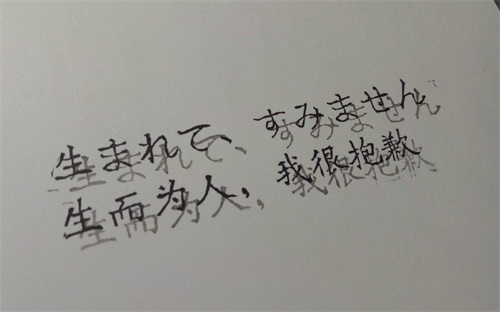 生まれて、すみません
生而为人，我很抱歉